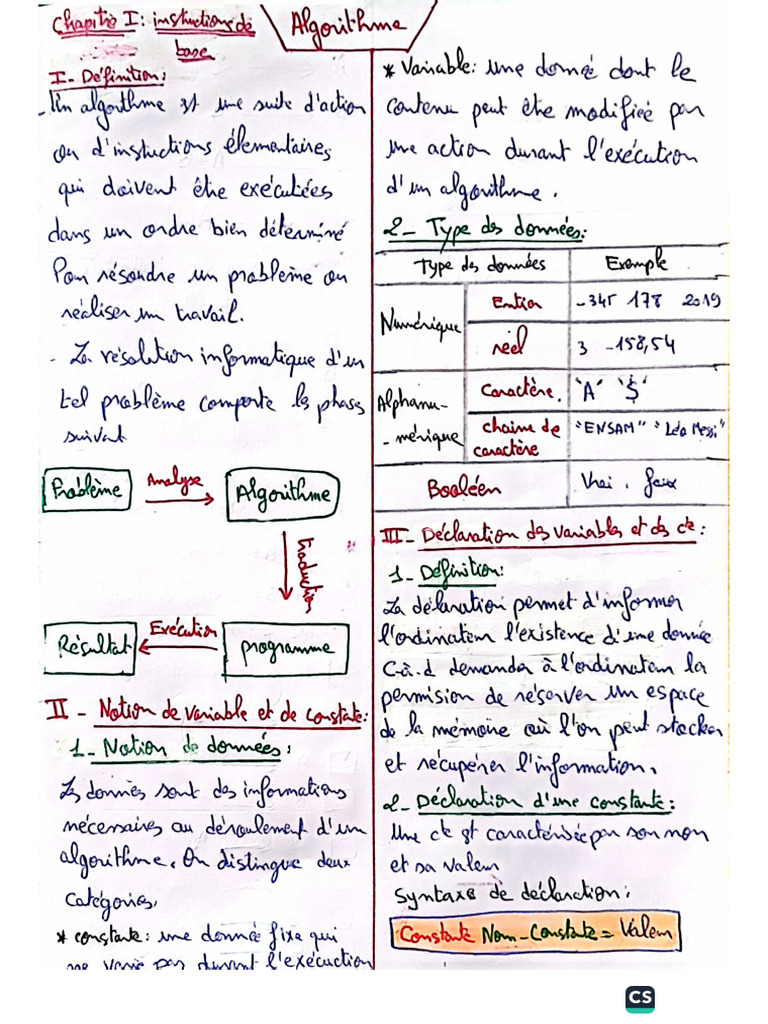 Algorithme
Chapitre I: instructions de
base
I- Définition:
- Un algorithme est une suite d'action
ou d'instuctions élementaires
qui doivent être exécutées
dans un ordre bien déterminé
Pour résoudre un problème ou
réaliser un travail.
- La résolution informatique d'un
tel problème comporte les phases
suivant
Problème Analyse Algorithme
traduction
Résultat Exécution programme
II - Notion de variable et de constate:
1- Notion de données:
Les données sont des informations
nécessaires au déroulement d'un
algorithme. On distingue deux
catégories,
* constante: une donnée fixe qui
ne varie pas durant l'exécuction
* Variable: une donné dont le
contenu peut être modifiée par
une action durant l'exécution
d'un algorithme.
2- Type des données:
Type des données Exemple
Numérique Entier -345 178 2019
réel 3 -158,54
Alphanu-
-mérique
Caractère. "A" "$"
chaine de
caractère
"ENSAM" "Léo Messi"
Booléen Vrai, faux
III- Déclaration des variables et des cte:
1- Définition:
La délaration permet d'informer
l'ordinateur l'existence d'une donnée
c-à.d demander à l'ordinateur la
permision de réserver un espace
de la mémoire où l'on peut stocker
et récupérer l'information.
2- Déclaration d'une constante:
Une cte est caractérisée par son nom
et sa valeur
Syntaxe de déclaration:
Constante Nom-Constante = Valeur
CS